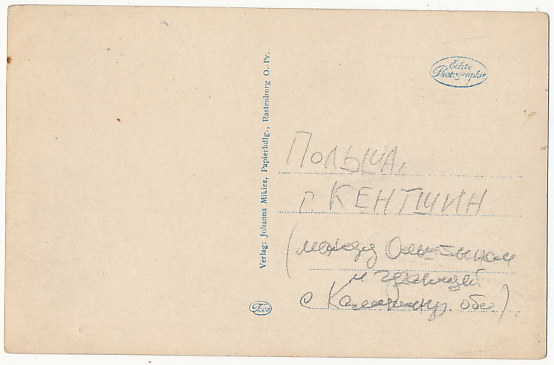 Verlag: Johanna Mikies, Papierhdlg., Rastenburg O.-Pr.
Echte
Photographie
ПОЛЬША,
г. КЕНТШИН
(между Ольштыном
и границей
с Калинингр. обл.)